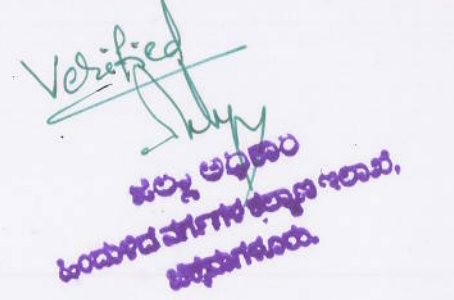 Verified
ಜಿಲ್ಲಾ ಅಧಿಕಾರಿ
ಹಿಂದುಳಿದ ವರ್ಗಗಳ ಕಲ್ಯಾಣ ಇಲಾಖೆ,
ಚಿಕ್ಕಮಗಳೂರು.